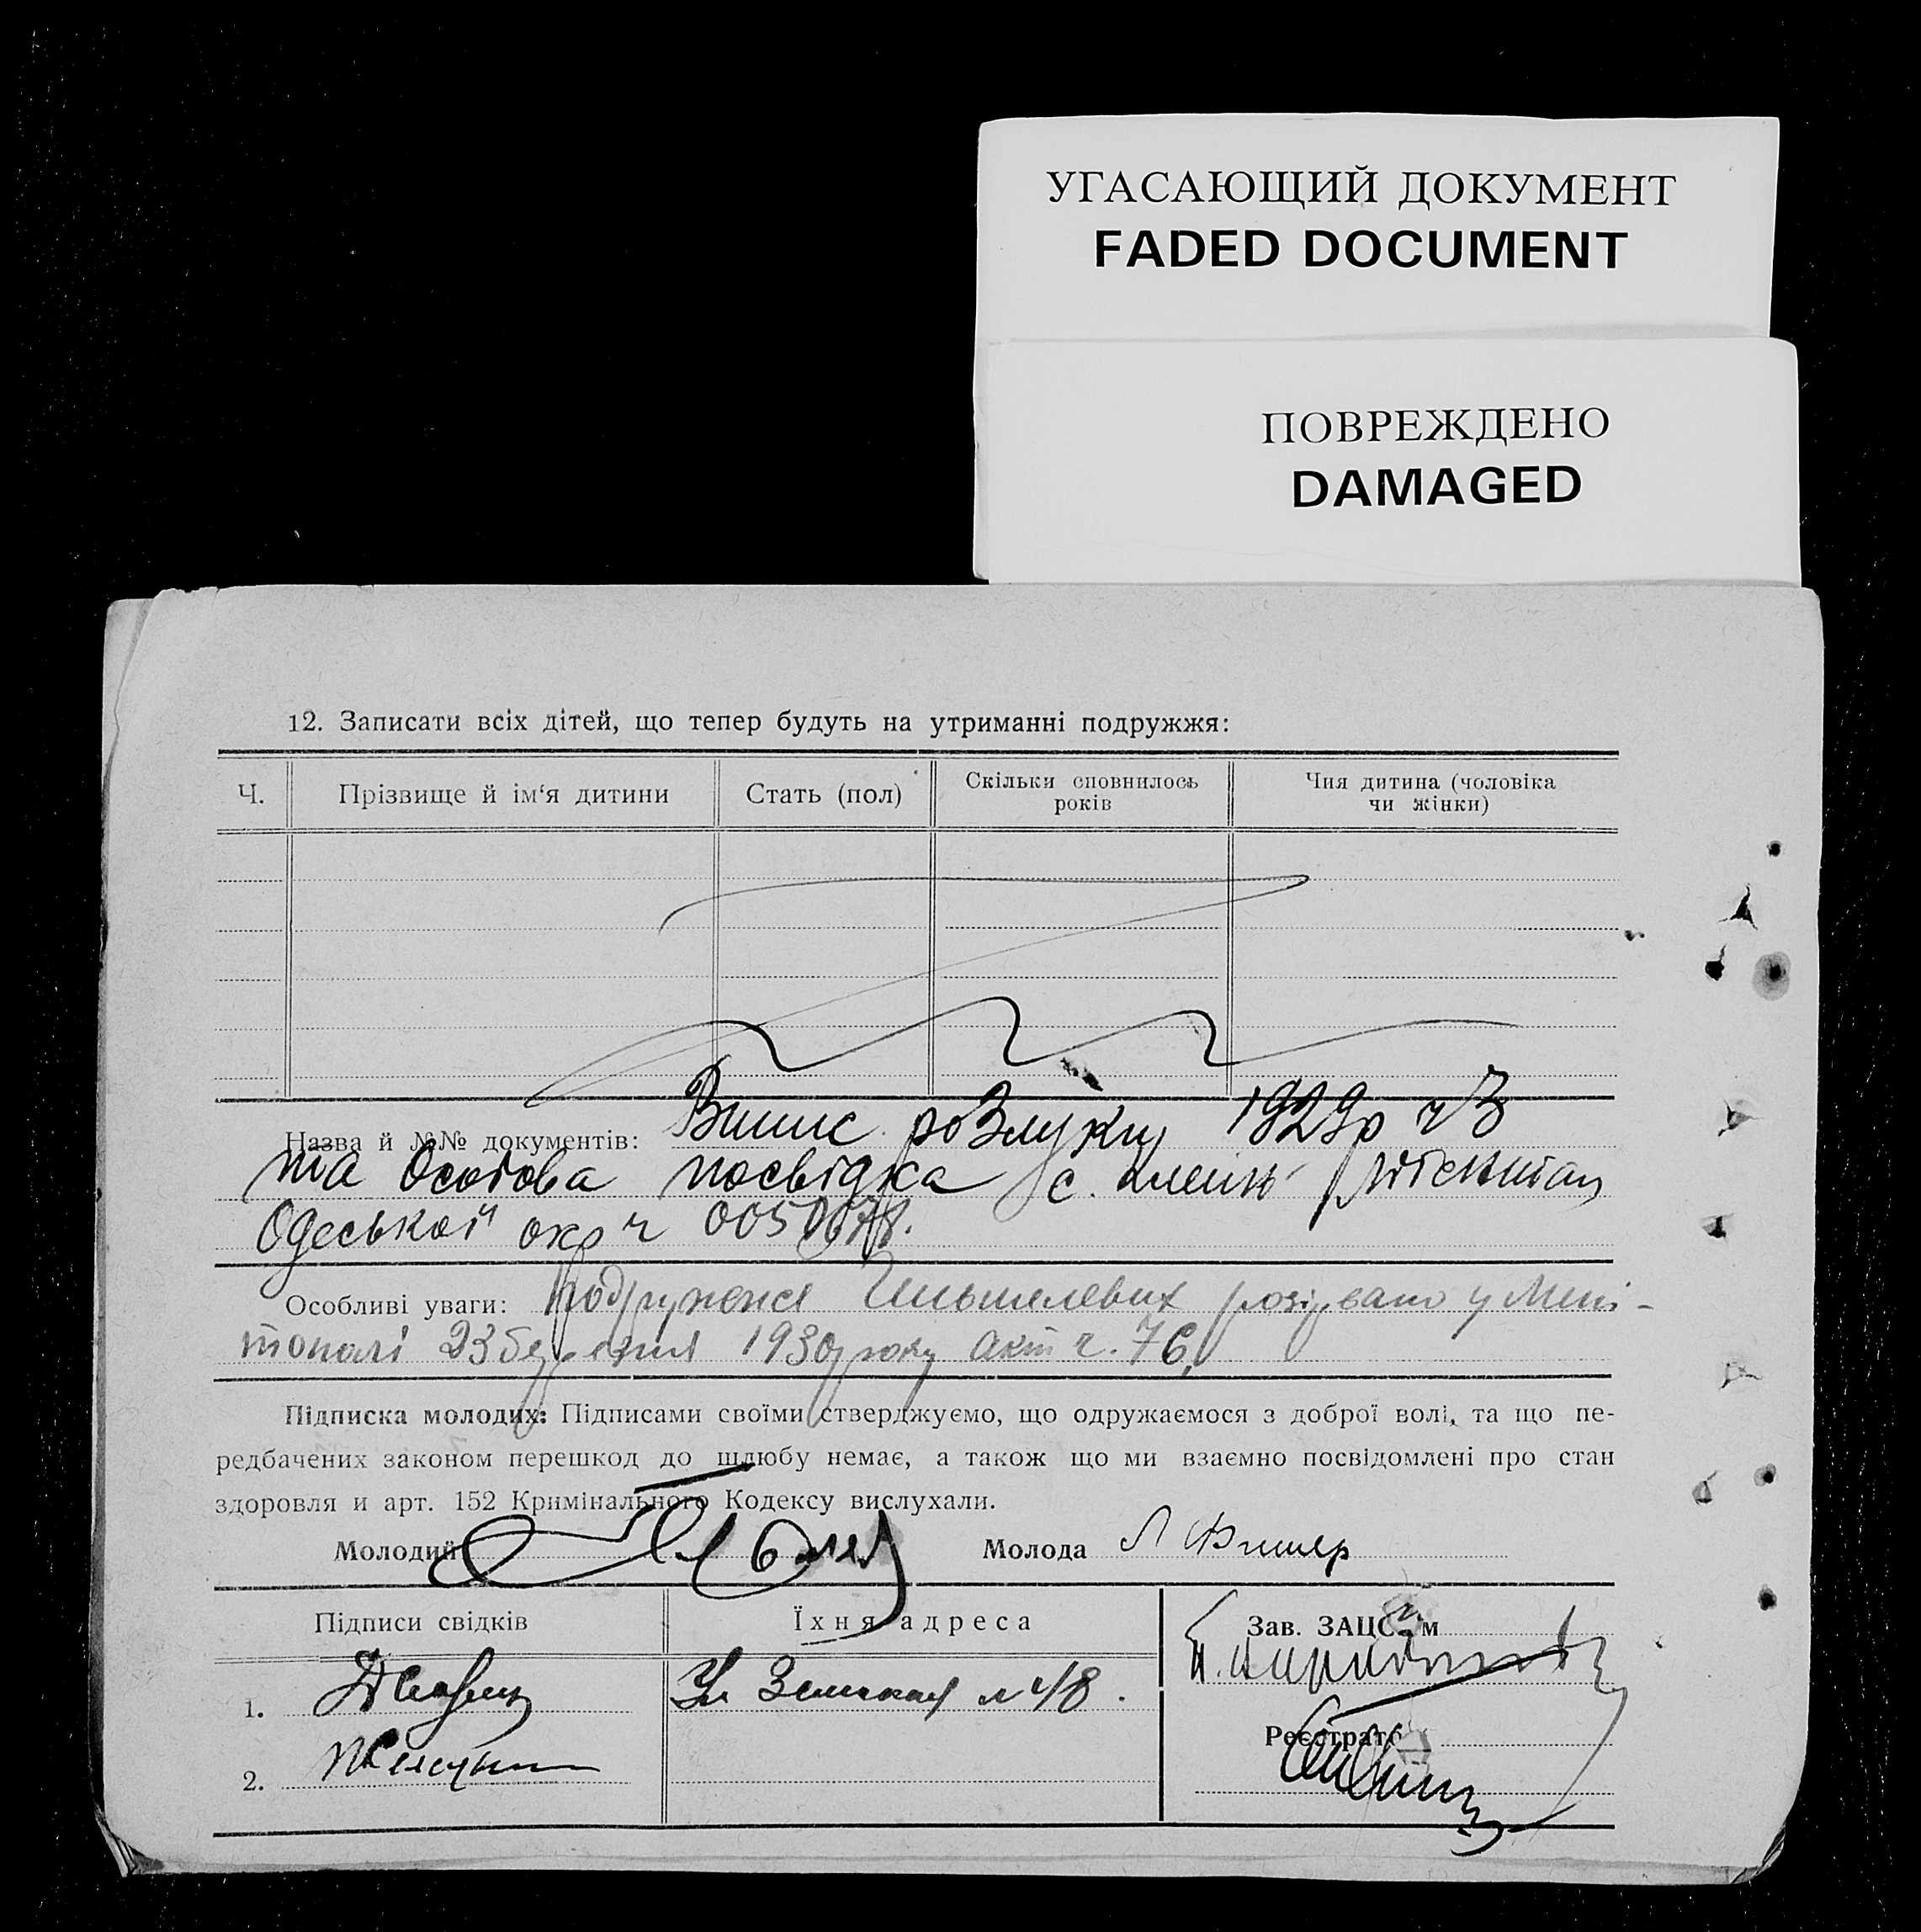 УГАСАЮЩИЙ ДОКУМЕНТ
FADED DOCUMENT
ПОВРЕЖДЕНО
DAMAGED
12. Записати всіх дітей, що тепер будуть на утриманні подружжя:
Ч.
Прізвище й ім‘я дитини
Стать (пол)
Скільки сповнилось
років
Чия дитина (чоловіка
чи жінки)
Назва й №№ документів: Випис розлуки 1929р ч 3
та Особова посвідка с.
Одеської окр ч
Особливі уваги: Подружжя розірвано у Мелі-
тополі 23 березня 1930 року акт ч. 76
Підписка молодих: Підписами своїми стверджуємо, що одружаємося з доброї волі, та що пе-
редбачених законом перешкод до шлюбу немає, а також що ми взаємно посвідомлені про стан
здоровля и арт. 152 Кримінального Кодексу вислухали.
Молодий
Молода Л Фишер
Підписи свідків
Їхня адреса
Зав. ЗАЦСом
1.
Ул № 48.
Реєстратор
2.